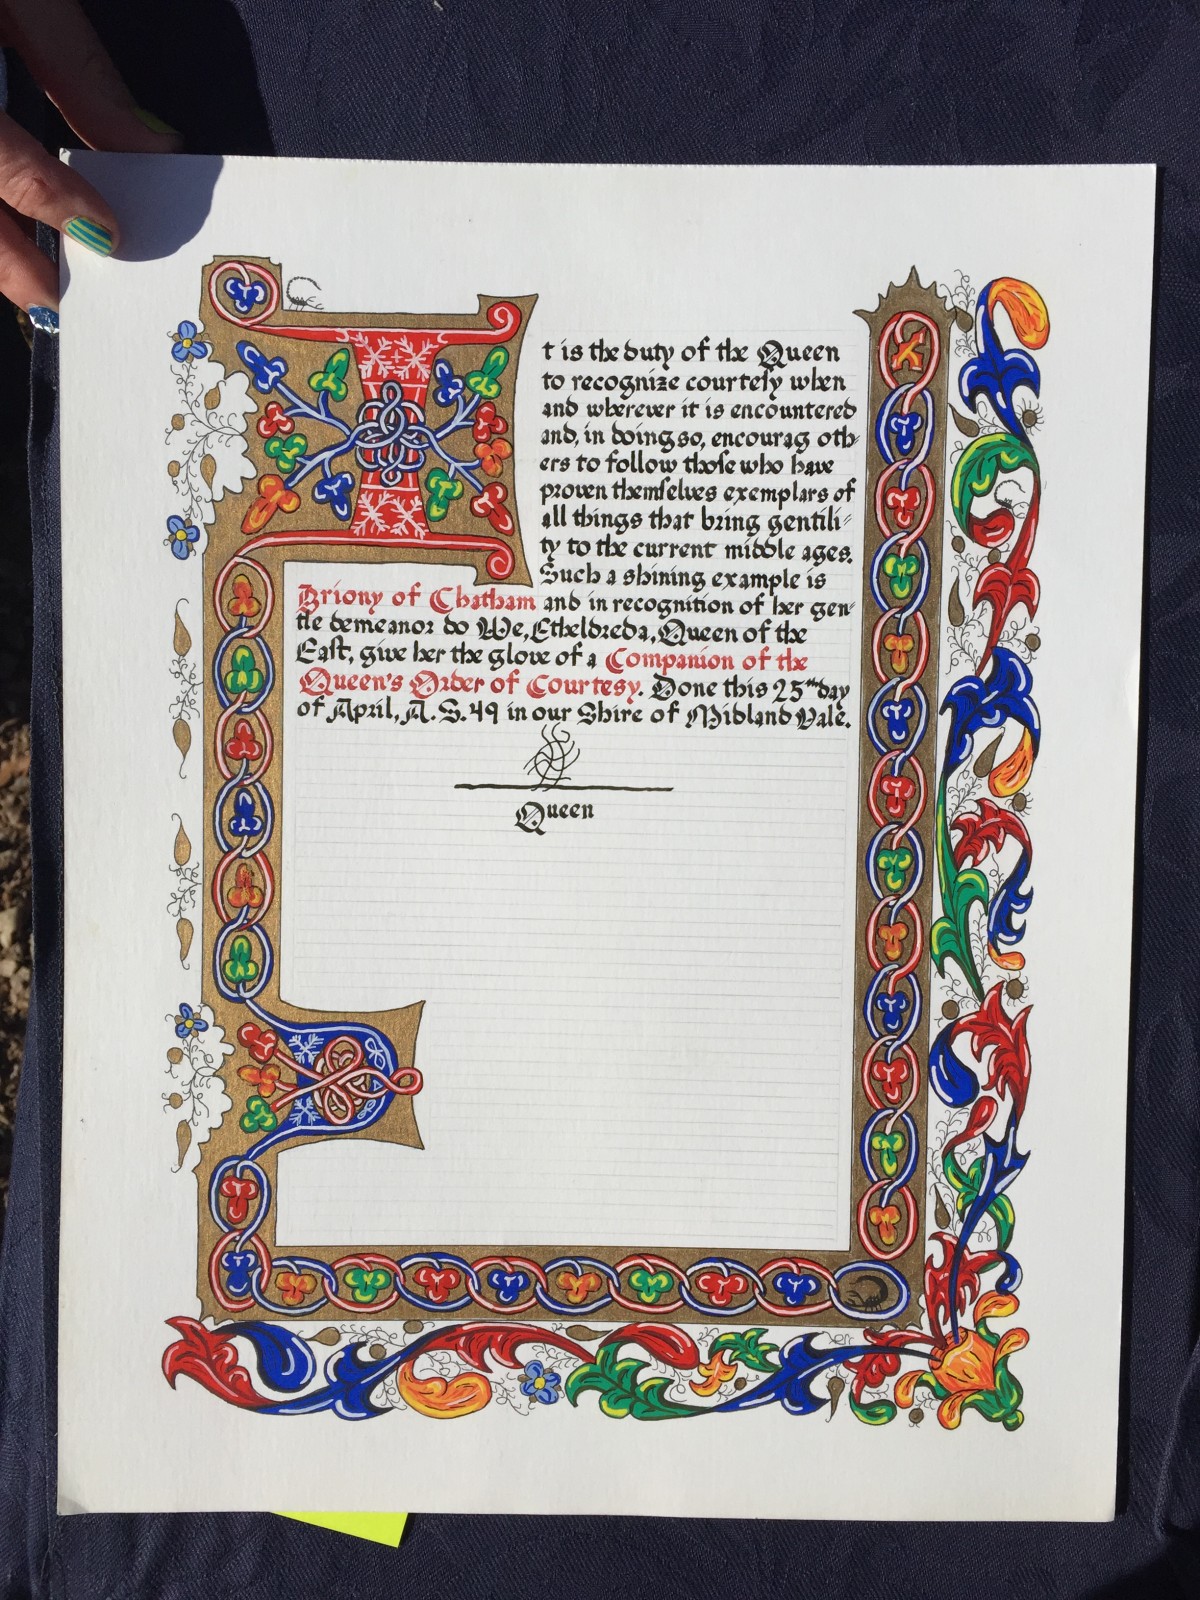 It is the duty of the Queen
to recognize courtesy when
and wherever it is encountered
and, in doing so, encourag oth-
ers to follow those who have
proven themselves exemplars of
all things that bring gentili-
ty to the current middle ages.
Such a shining example is
Briony of Chatham and in recognition of her gen-
tle demeanor do We, Etheldreda, Queen of the
East, give her the glove of a Companion of the
Queen's Order of Courtesy. Done this 25th day
of April, A.S. 49 in our Shire of Midland Vale.
Queen